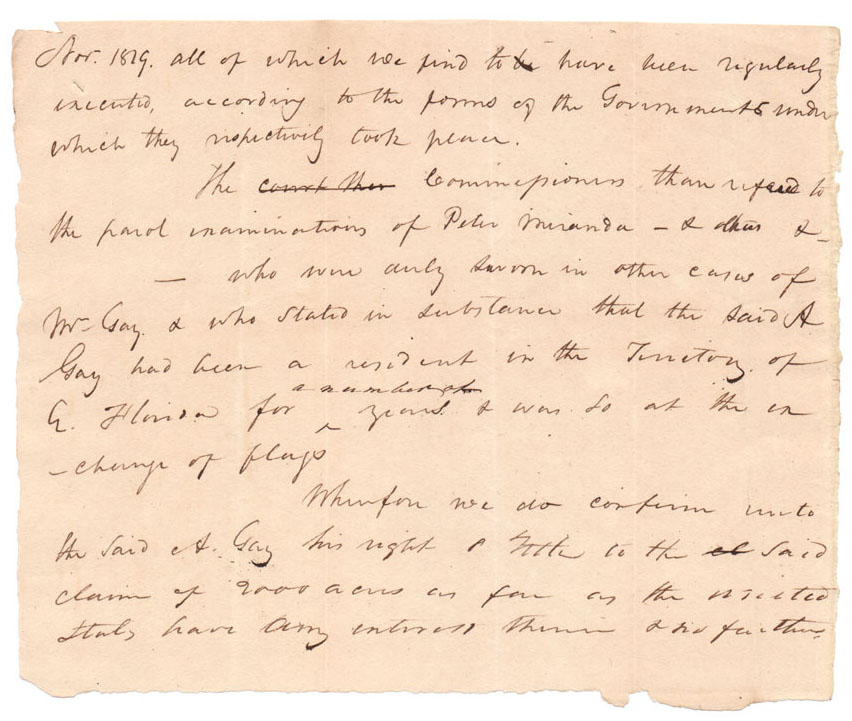 Nov. 1819. all of which we find to be have been regularly
executed, according to the forms of the Governments under
which they respectively took place.
The court ther Commissioners than refered to
the parol examinations of Peter Miranda – & others &–
— who were duly sworn in other cases of
Mr Gay. & who stated in substance that the said A
Gay had been a resident in the Territory of
E. Florida for a number of years & was so at the ex
-change of flags
Wherefore we do confirm unto
the said A. Gay his right & title to the said
claim of 2000 acres as far as the united
States have any interest therein & no further